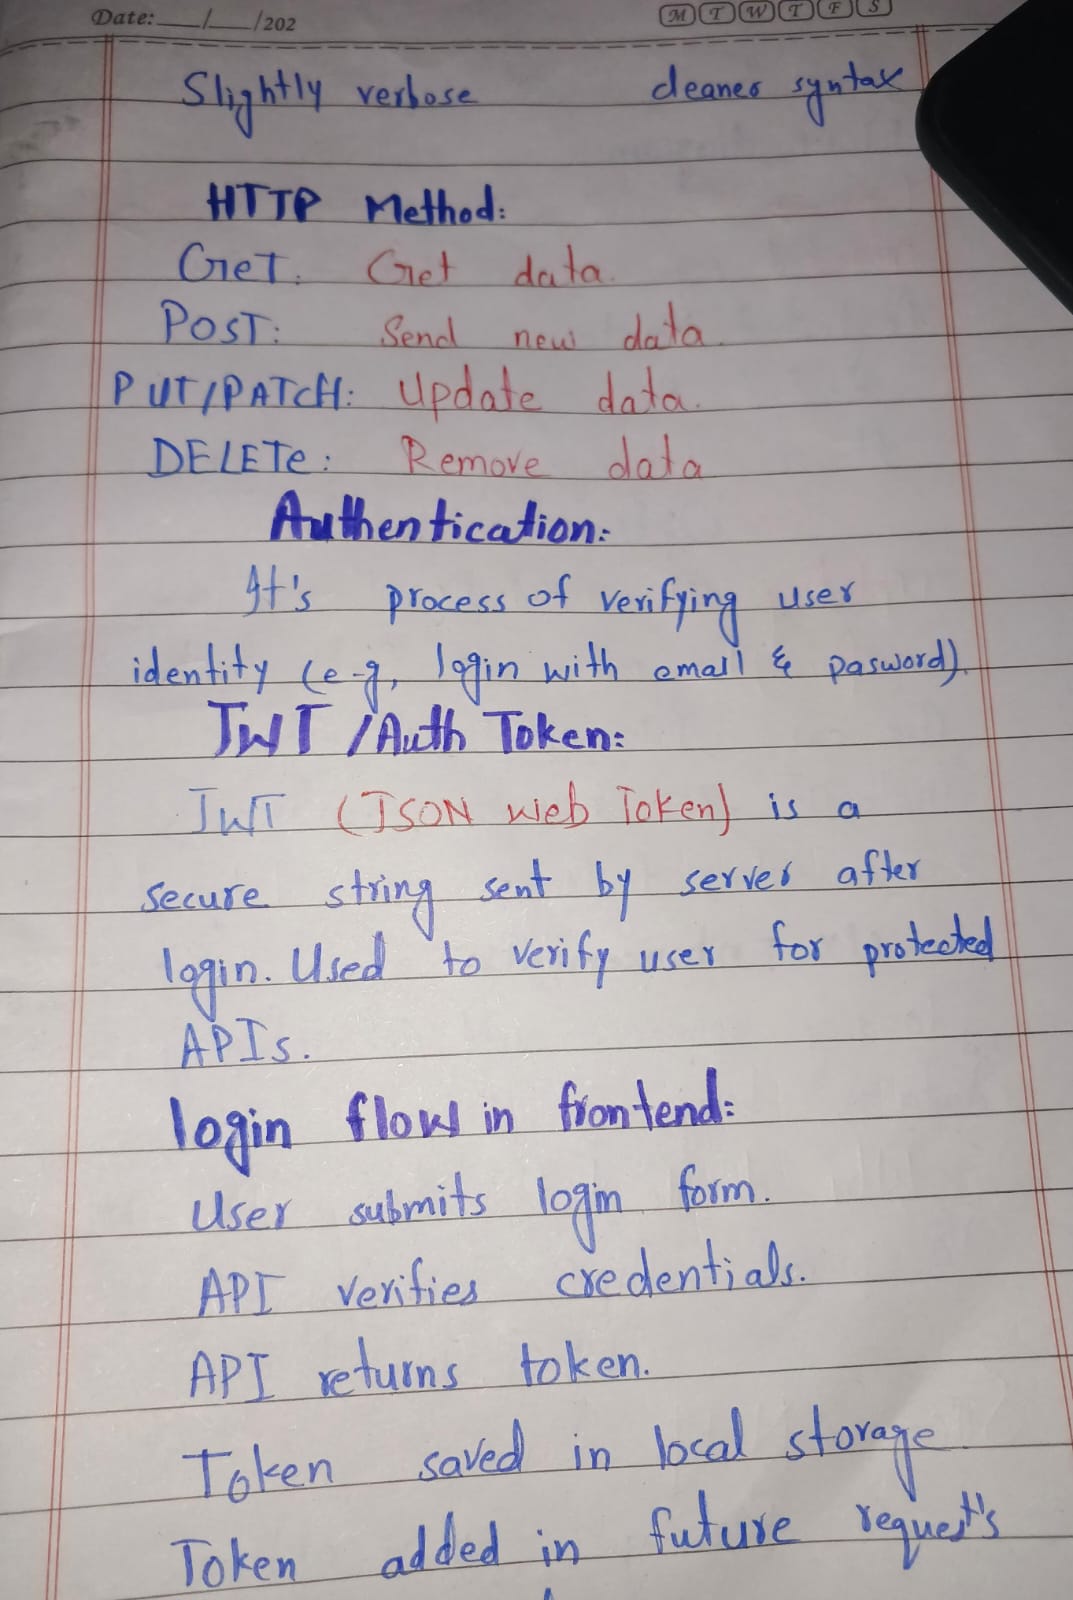 Date: __/__/202 M T W T F S
Slightly verbose cleaner syntax
HTTP Method:
GET: Get data.
POST: Send new data.
PUT/PATCH: Update data.
DELETE: Remove data
Authentication:
It's process of verifying user
identity (e-g, login with email & pasword).
JWT /Auth Token:
JWT (JSON Web Token) is a
secure string sent by server after
login. Used to verify user for protected
APIs.
login flow in frontend:
User submits login form.
API verifies credentials.
API returns token.
Token saved in local storage
Token added in future request's